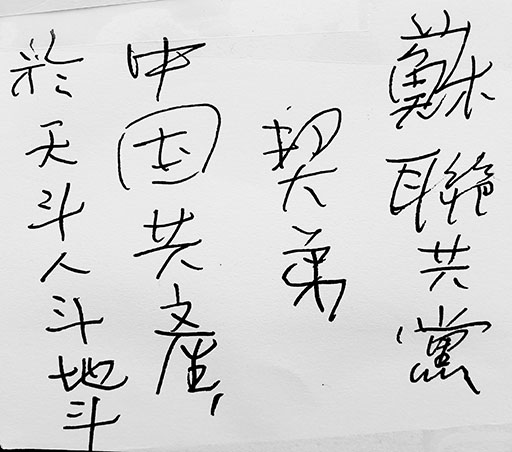 蘇聯共黨
契弟
中国共產,
於天斗人斗地斗